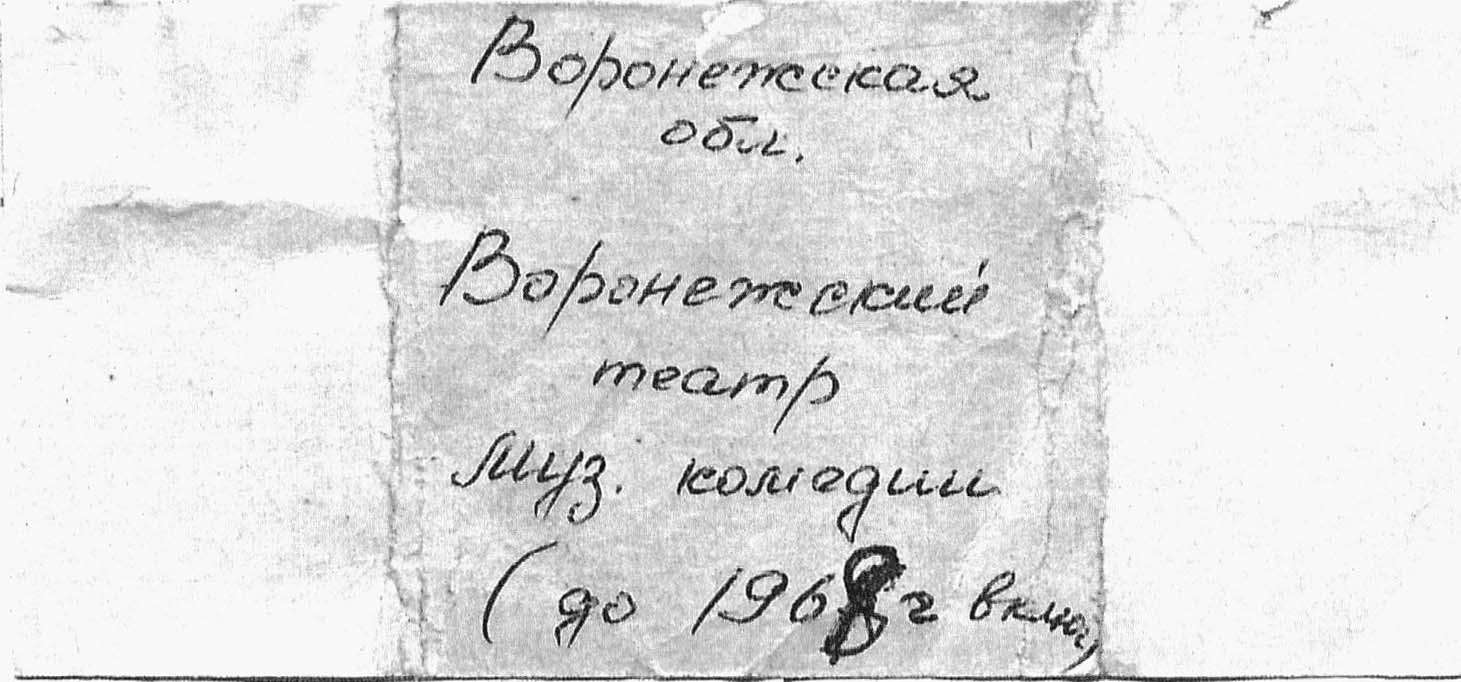 Воронежская
обл.
Воронежский
театр
Муз. комедии
(до 1968 г включ)